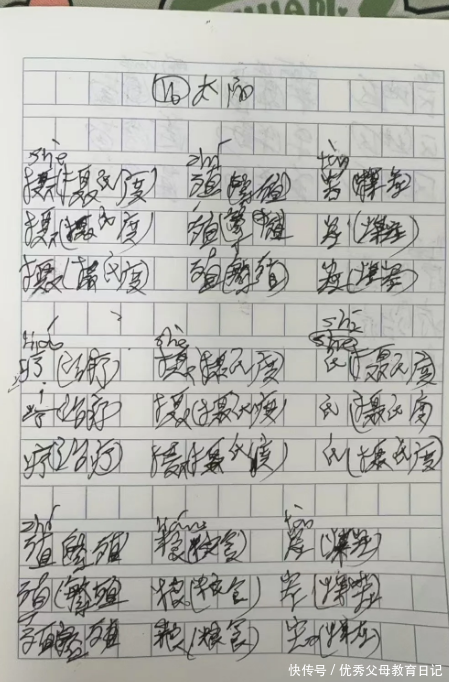 ⑯太阳
shè zhí tàn
摄(摄氏度) 殖(繁殖) 炭(煤炭)
摄(摄氏度) 殖(繁殖) 炭(煤炭)
摄(摄氏度) 殖(繁殖) 炭(煤炭)
liáo shè shì
疗(治疗) 摄(摄氏度) 氏(摄氏度)
疗(治疗) 摄(摄氏度) 氏(摄氏度)
疗(治疗) 摄(摄氏度) 氏(摄氏度)
zhí liáng tàn
殖(繁殖) 粮(粮食) 炭(煤炭)
殖(繁殖) 粮(粮食) 炭(煤炭)
殖(繁殖) 粮(粮食) 炭(煤炭)
快传号/优秀父母教育日记